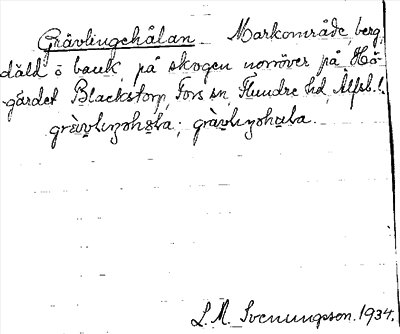 Grävlingehålan Markområde, berg,
däld o bank, på skogen norröver på Hö-
gärdet Blackstorp, Fors sn, Flundre hd, Älfsb. l.
L. M. Svenungsson. 1934.